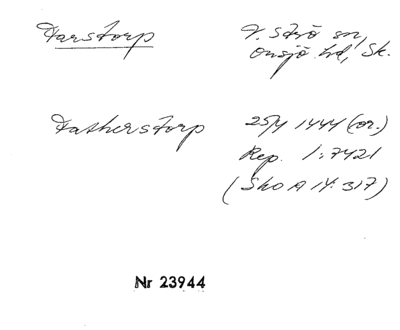 Farstorp
V. Strö sn,
Onsjö hd, Sk.
Fatherstorp
25/4 1444 (or.)
Rep. 1:7421
(Sko A 14:317)
Nr 23944